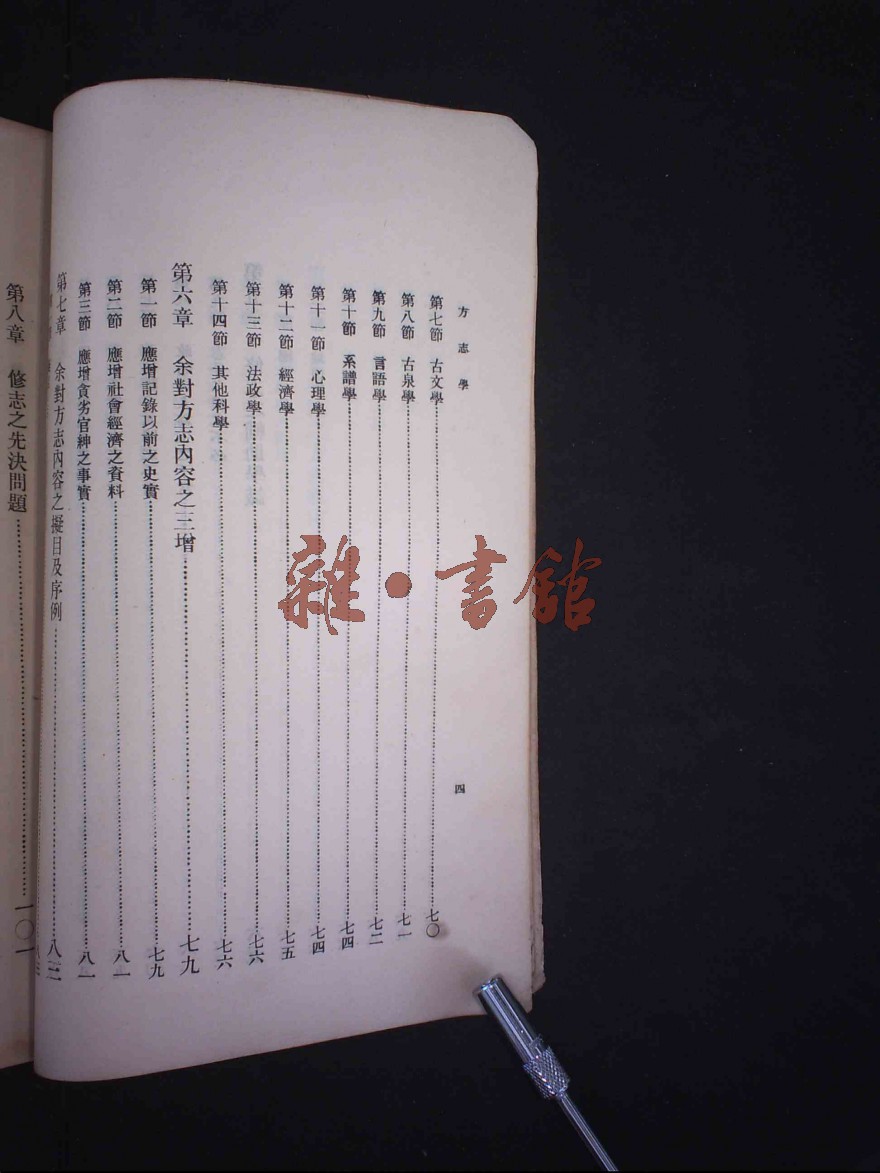 方志學
四
第七節 古文學 七〇
第八節 古泉學 七一
第九節 言語學 七二
第十節 系譜學 七四
第十一節 心理學 七四
第十二節 經濟學 七五
第十三節 法政學 七六
第十四節 其他科學 七六
第六章 余對方志內容之三增 七九
第一節 應增記錄以前之史實 七九
第二節 應增社會經濟之資料 八一
第三節 應增貪劣官紳之事實 八一
第七章 余對方志內容之擬目及序例 八三
第八章 修志之先決問題 一〇一
雜·書館